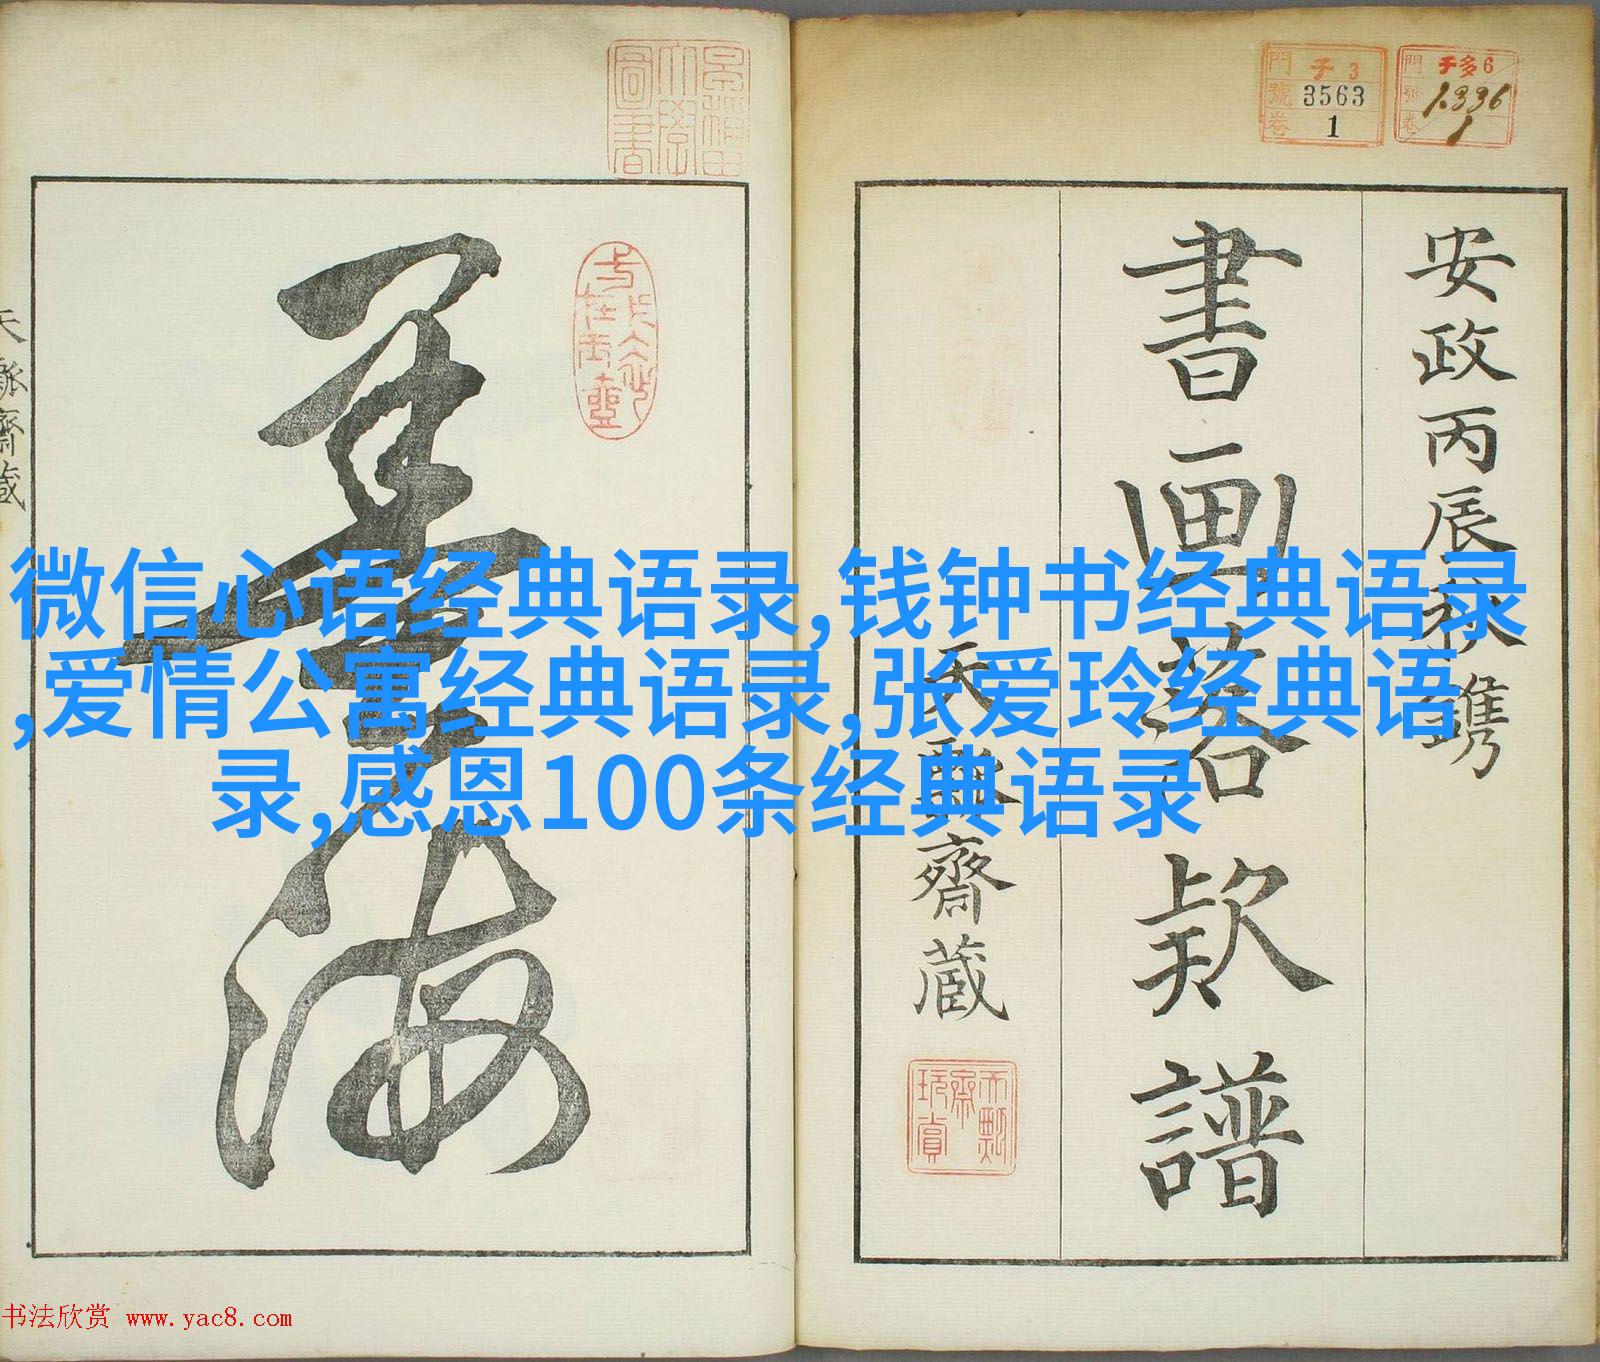 微信心语经典语录,钱钟书经典语录
,爱情公寓经典语录,张爱玲经典语
录,感恩100条经典语录
門 チ 3
號 3563
卷 1
門 チ多6
號 1336
卷 1
安政丙辰秋鐫
書画落款譜
天瓢齋蔵
天瓢齋蔵
书法欣赏 www.yac8.com